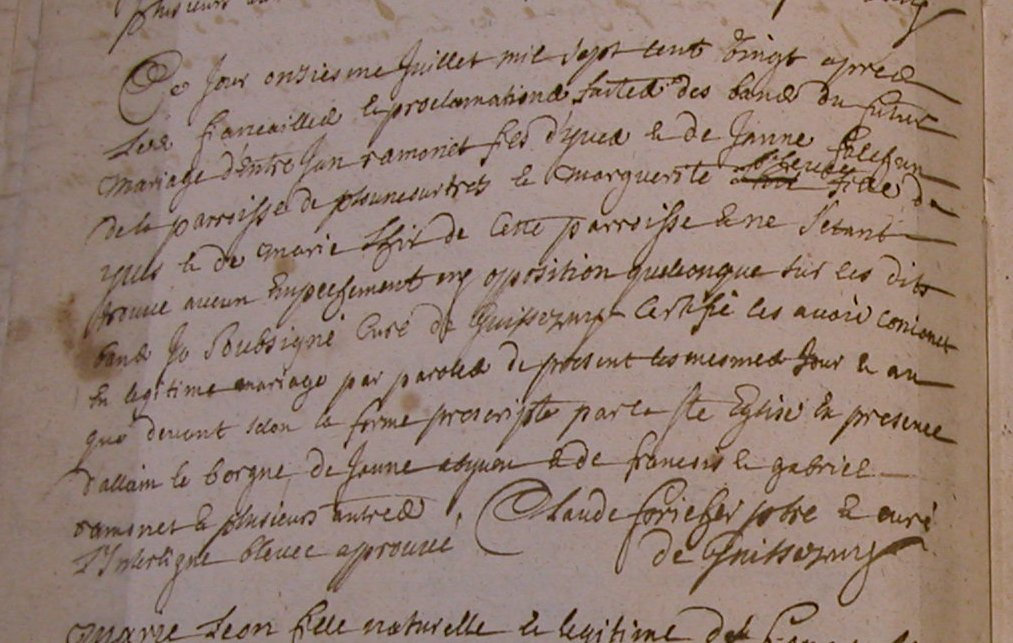 plusieurs
Ce Jour onziesme Juillet mil sept cent Vingt apres
Les fiancailles & proclamations faites des bans du futur
mariage d'Entre Jan ramonet fils d'yves & de Janne
de la parroisse de plouneourtrez & Marguerite bleuee fille de
yves & de marie de Cette parroisse & ne s'etant
trouvé aucun Empeschement ny opposition quelconque sur les dits
bans Je Soubsigné Curé de Guissezny Certifie les avoir conioinct
En legitime mariage par paroles de present les mesmes Jour & an
que devant selon la forme prescripte par la Ste Eglise En presence
d'allain le borgne, de Janne & de francois & gabriel
ramonet & plusieurs autres. Claude ptre & curé
L'Interligne bleuee aprouvé de Guissezny
Marie Leon fille naturelle & legitime de